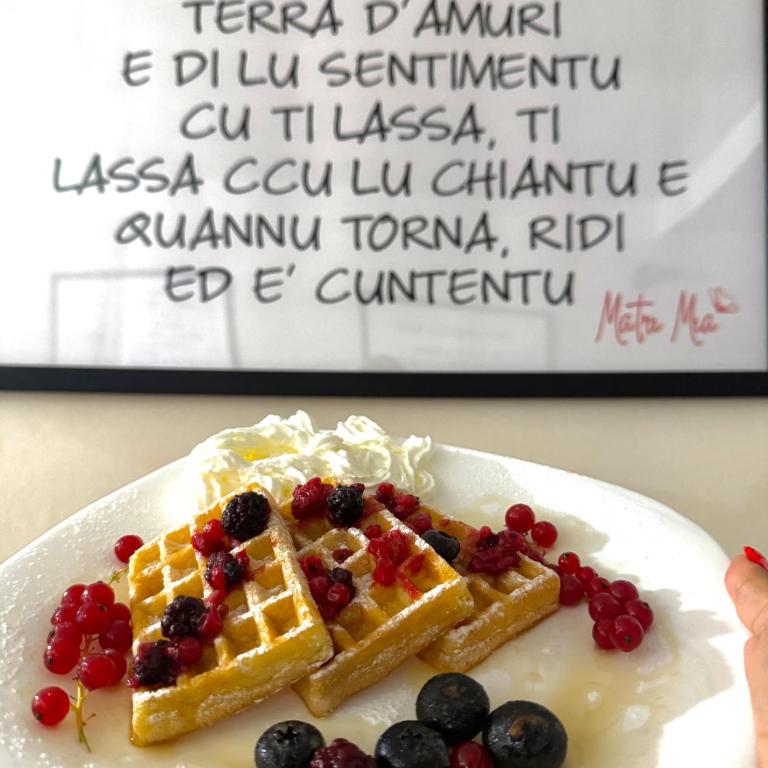 TERRA D'AMURI
E DI LU SENTIMENTU
CU TI LASSA, TI
LASSA CCU LU CHIANTU E
QUANNU TORNA, RIDI
ED E' CUNTENTU
Matri Mia